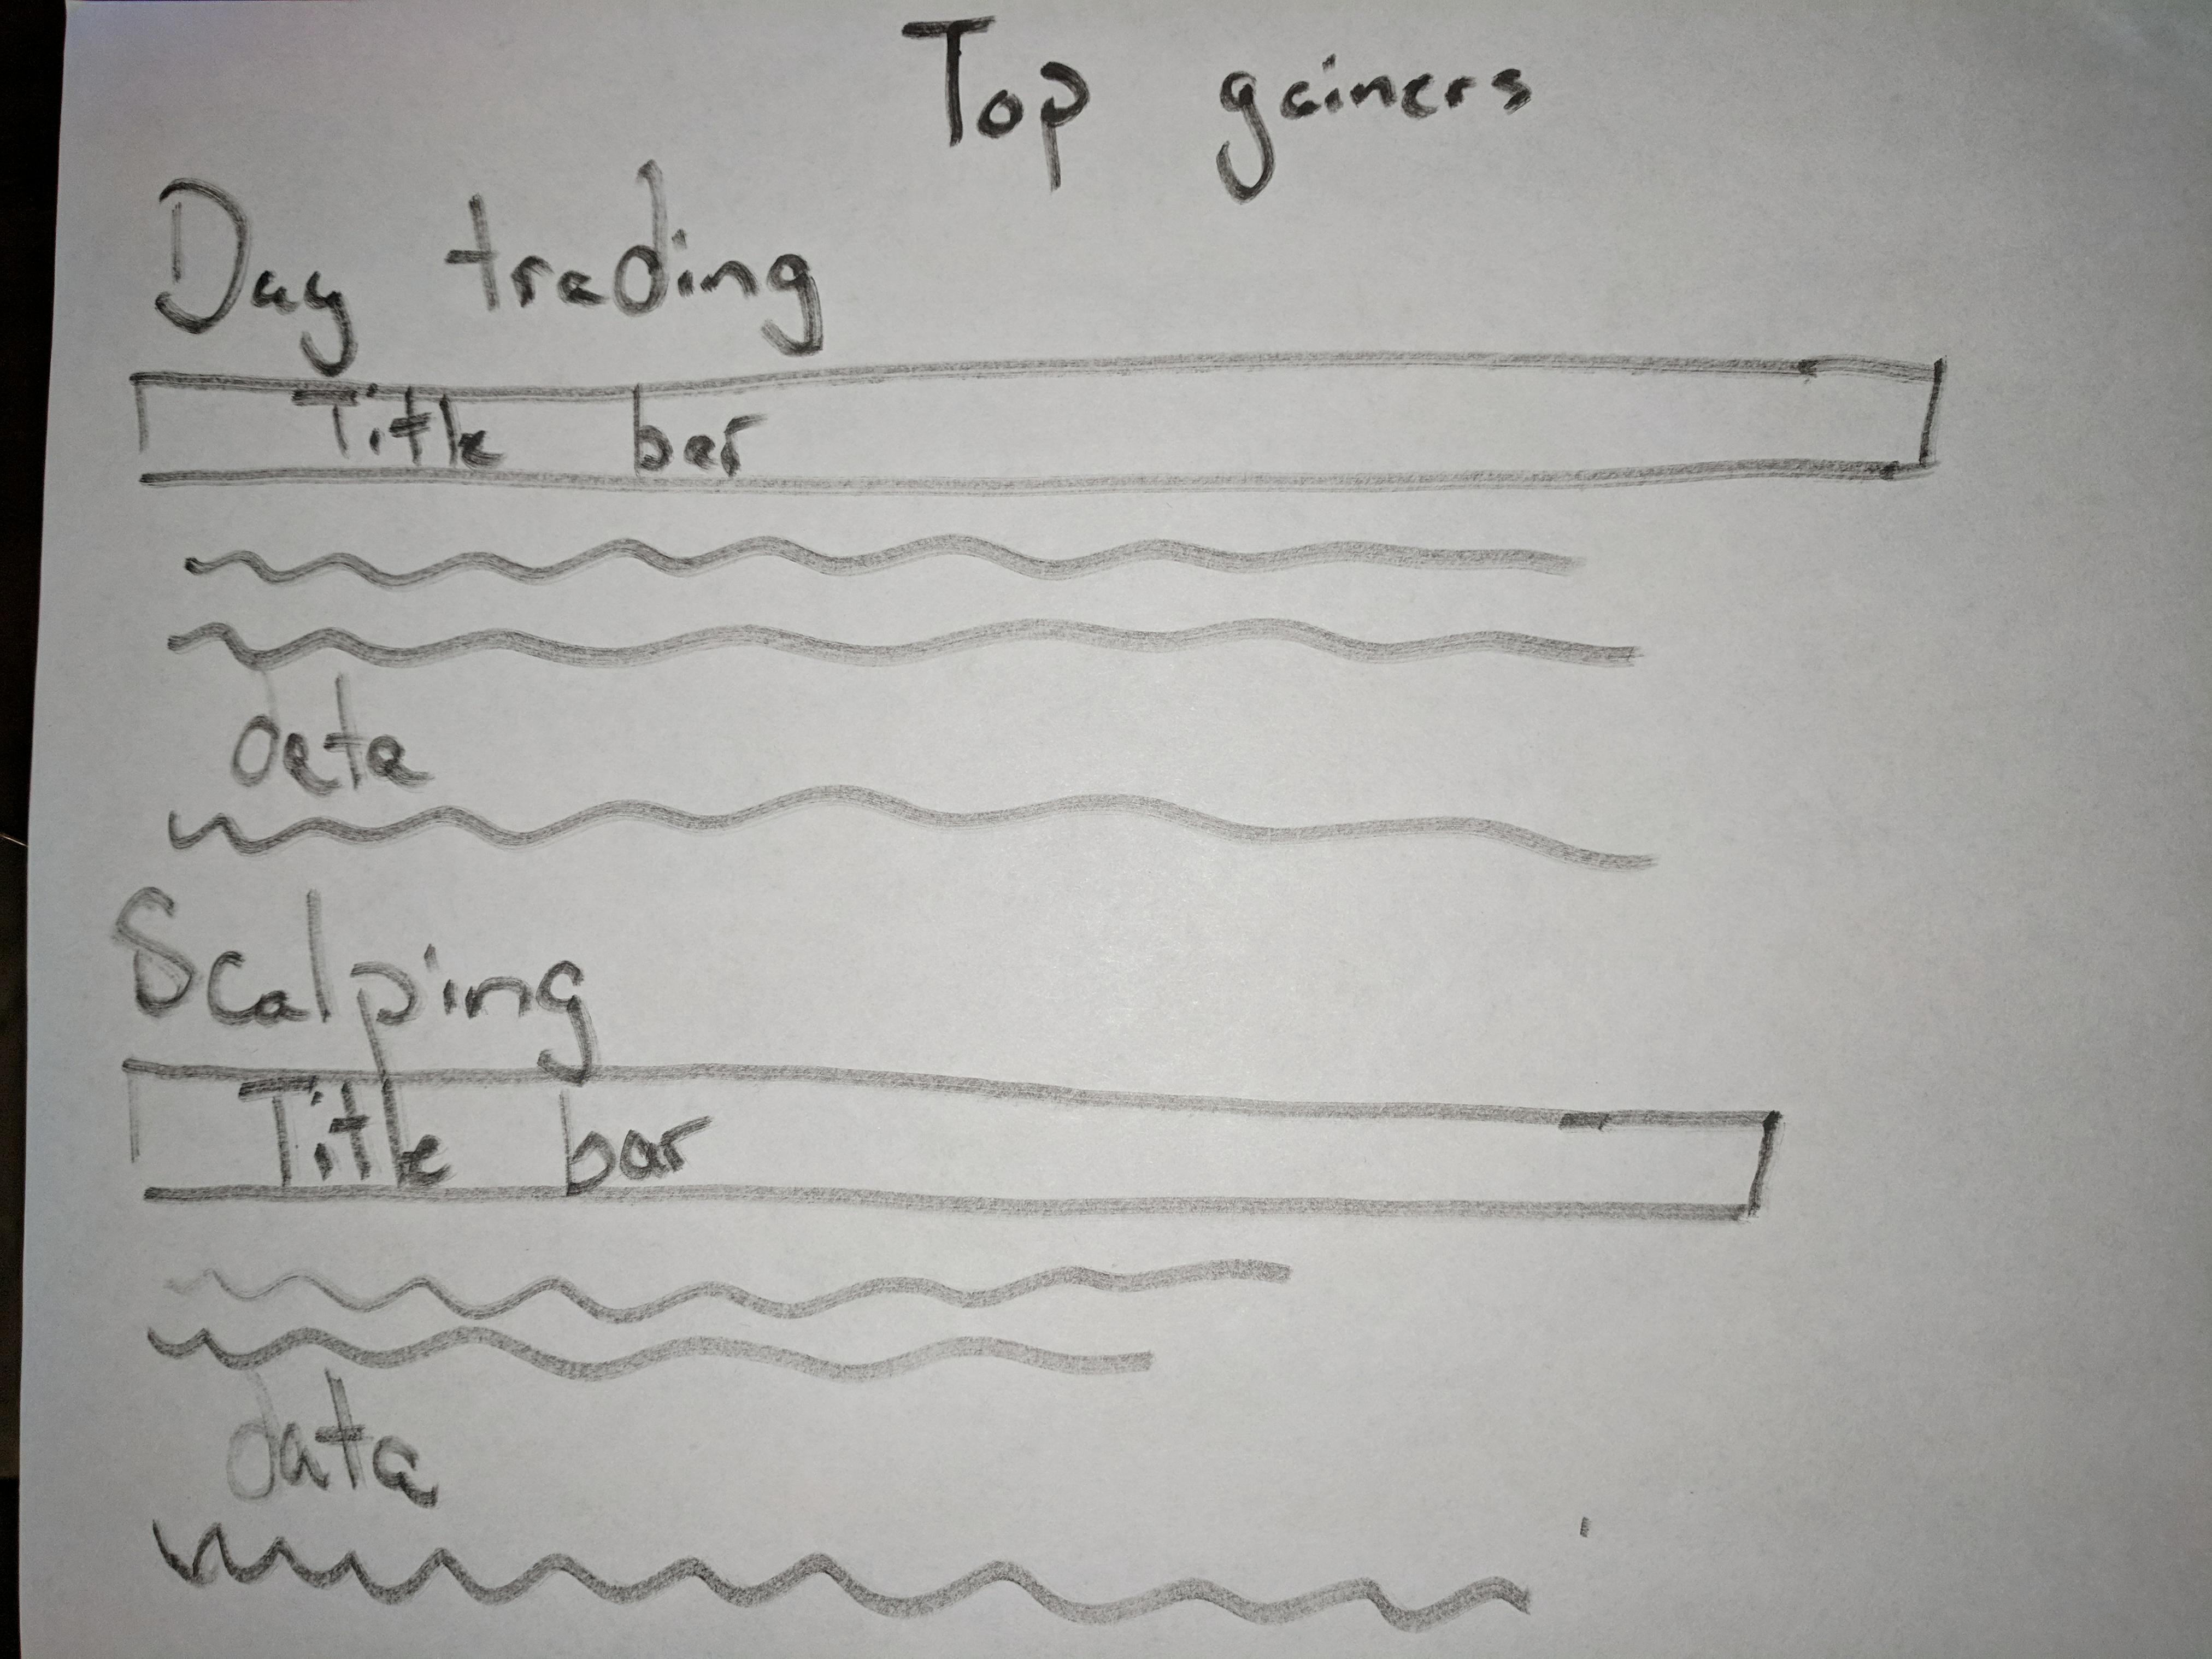 Top gainers
Day trading
Title bar
data
Scalping
Title bar
data